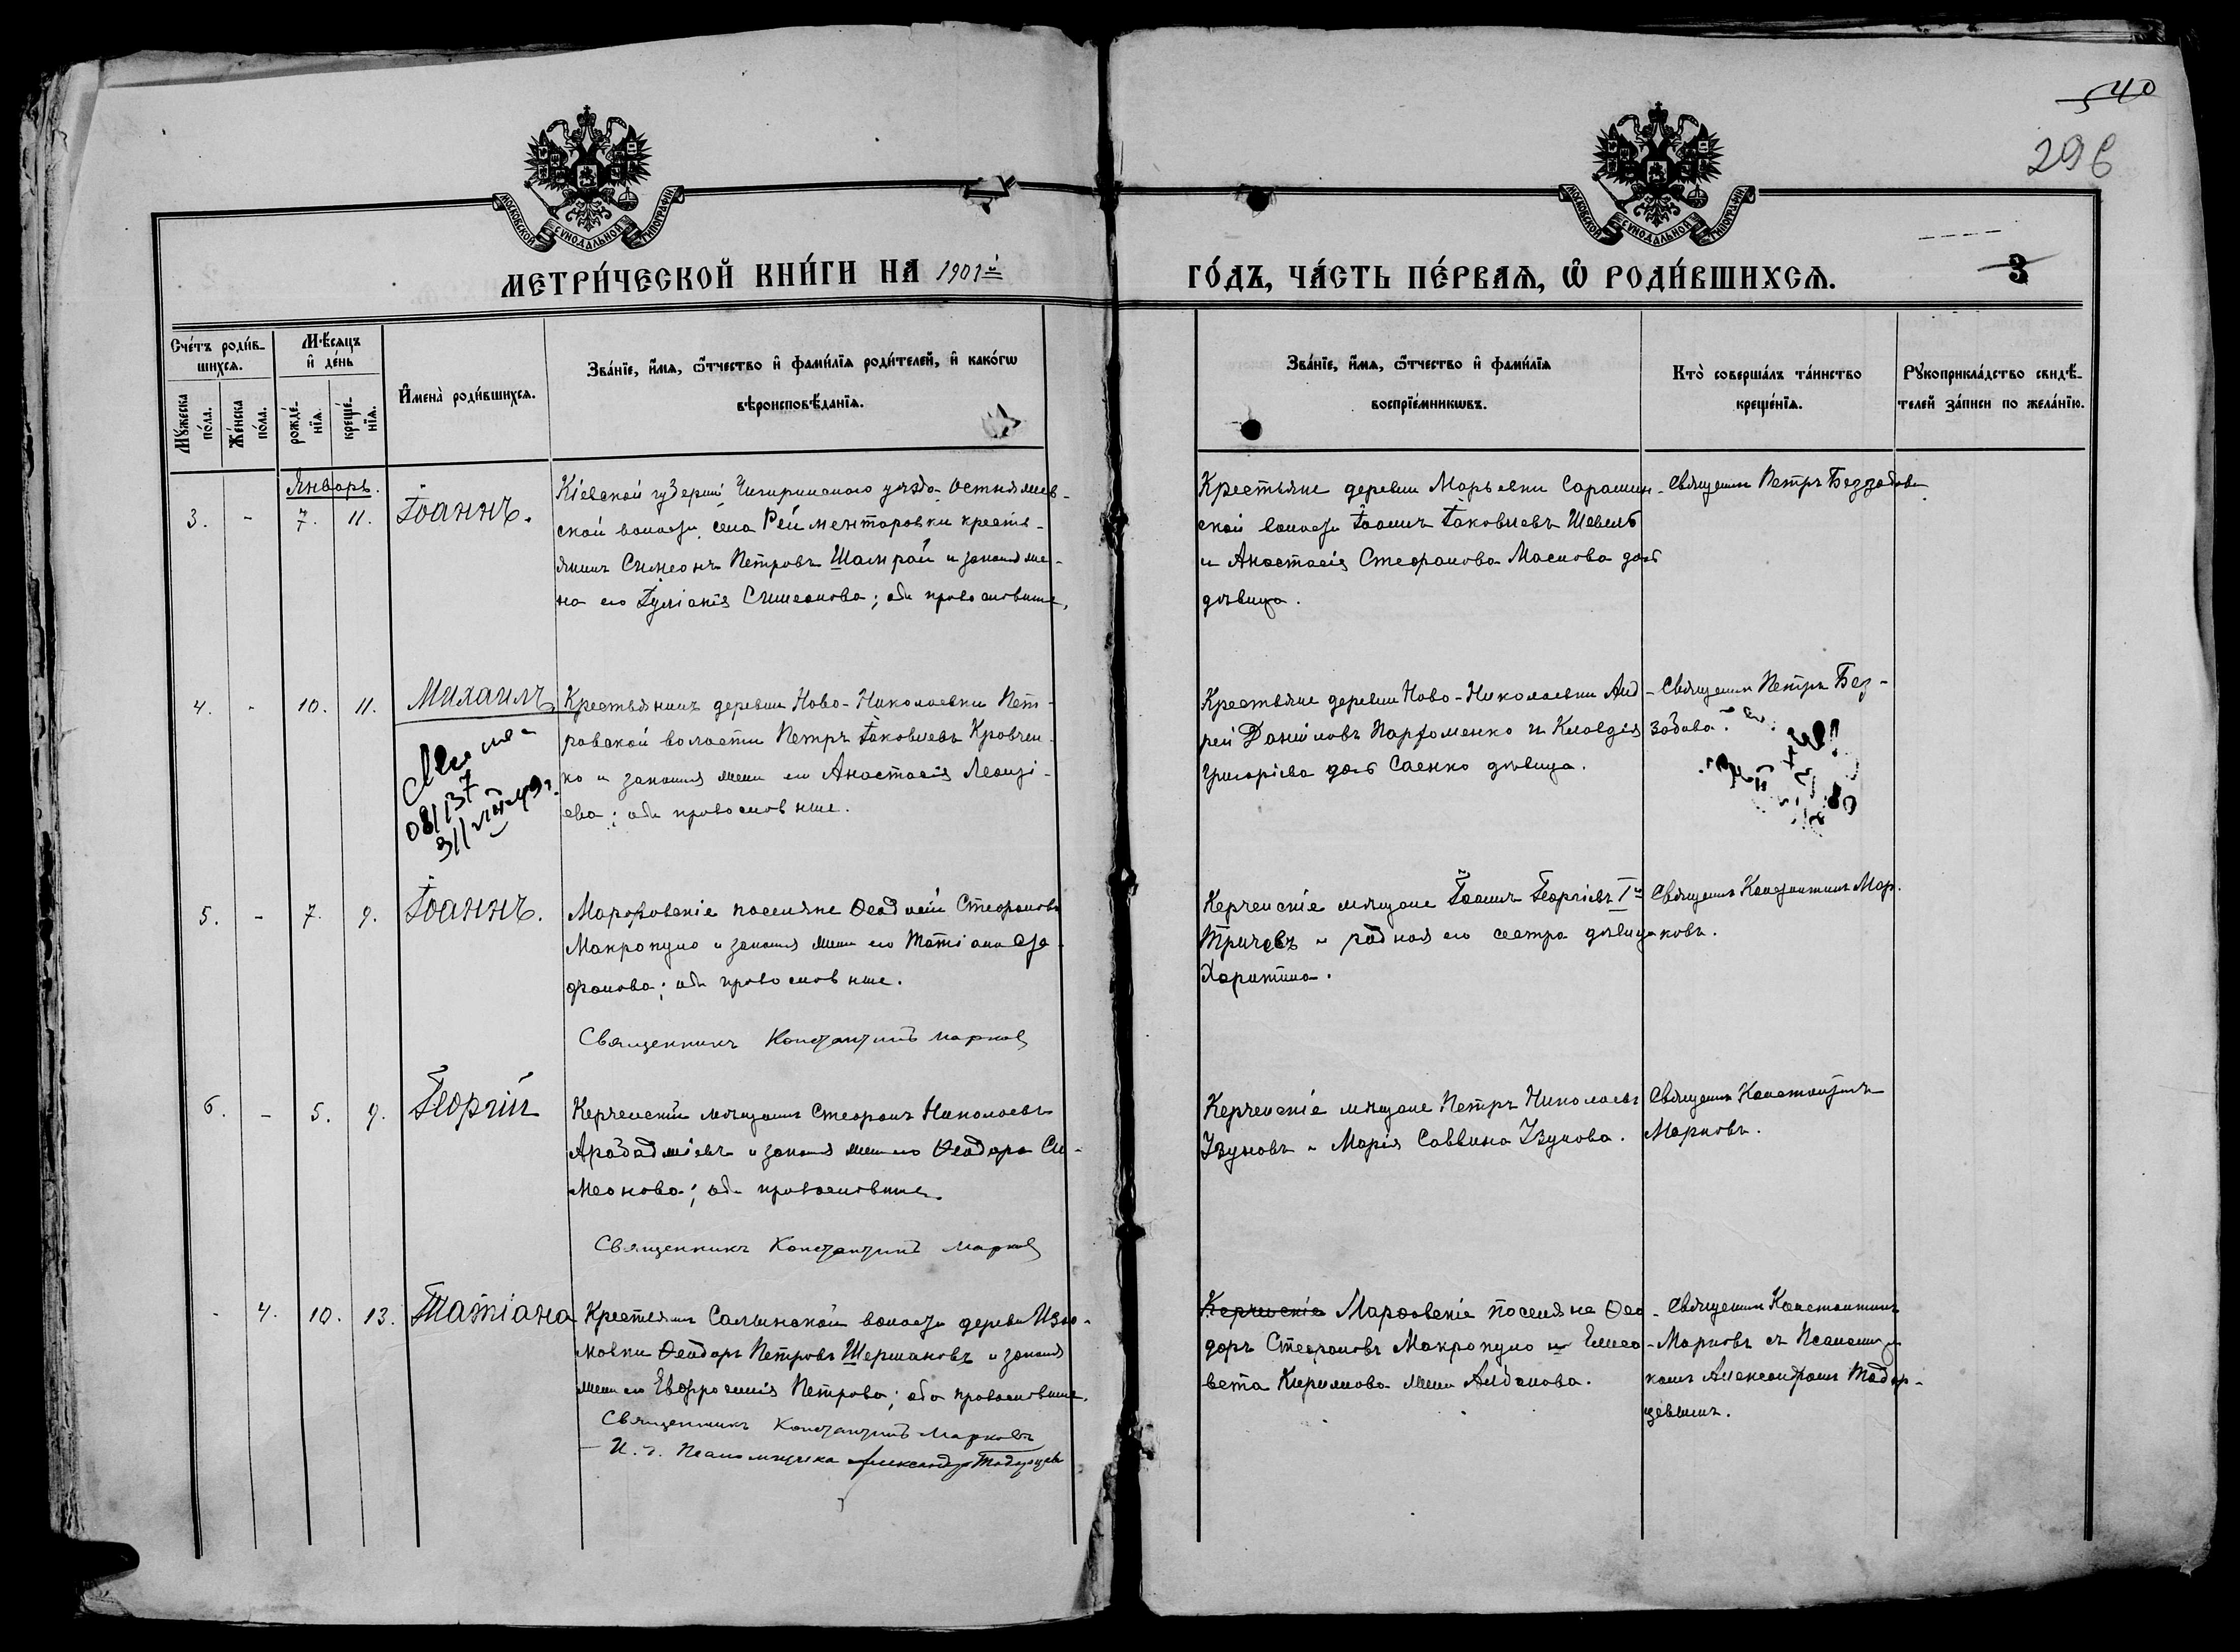 540
296
МОСКОВСКОЙ СѴНОДАЛЬНОЙ ТИПОГРАФІИ
МОСКОВСКОЙ СѴНОДАЛЬНОЙ ТИПОГРАФІИ
МЕТРИ́ЧЕСКОЙ КНИ́ГИ НА 1901й ГО́ДЪ, ЧА́СТЬ ПЕ́РВАЯ, Ѡ РОДИ́ВШИХСЯ. 3
Сче́тъ роди́в-
шихся.
Му́жеска по́ла.
Же́нска по́ла.
Мѣ́сяцъ и де́нь
рожде́-нїя.
креще́-нїя.
Имена̀ роди́вшихся.
Зва́нїе, и́мя, ѻ҆́тчество и фами́лїя роди́телей, и како́гѡ
вѣроисповѣ́данїя.
Зва́нїе, и́мя, ѻ҆́тчество и фами́лїя
воспрїе́мникѡвъ.
Кто̀ соверша́лъ та́инство
креще́нїя.
Рꙋкоприкла́дство свидѣ́-
телей за́писи по жела́нїю.
Январь.
3. - 7. 11. Іоаннъ.
Кіевской губерніи Чигиринскаго уѣзда Остнямев-
ской волости села Рейментаровки кресть-
янинъ Симеонъ Петровъ Шамрай и законная же-
на его Іуліанія Симеонова; оба православные.
Крестьяне деревни Марьевки Сарамин-
ской волости Іоаннъ Іаковлевъ Шевель
и Анастасія Стефанова Маслова дочь
дѣвица.
Священникъ Петръ Беззабава
4. - 10. 11. Михаилъ
Крестьянинъ деревни Ново-Николаевки Пет-
ровской волости Петръ Іаковлевъ Кравчен-
ко и законная жена его Анастасія Леонті-
ева; оба православные.
Крестьяне деревни Ново-Николаевки Анд-
рей Даніиловъ Парфоменко и Клавдія
Григоріева дочь Саенко дѣвица.
Священникъ Петръ Без-
забава.
5. - 7. 9. Іоаннъ.
Марфовскіе поселяне Феодосій Стефановъ
Макропуло и законная жена его Татіана Сте-
фанова; оба православные.
Священникъ Константинъ Марковъ
Керченскіе мѣщане Іоаннъ Георгіевъ 1й
Тричевъ и родная его сестра дѣвица
Харитина.
Священникъ Константинъ Мар-
ковъ.
6. - 5. 9. Георгій
Керченскій мѣщанинъ Стефанъ Николаевъ
Арабаджіевъ и законная жена его Феодора Си-
меонова; оба православные.
Священникъ Константинъ Марковъ
Керченскіе мѣщане Петръ Николаевъ
Узуновъ и Марія Саввина Узунова.
Священникъ Константинъ
Марковъ.
- 4. 10. 13. Татіана
Крестьянинъ Салынской волости деревни Изю-
мовки Феодоръ Петровъ Шермановъ и законная
жена его Евфросинія Петрова; оба православные.
Священникъ Константинъ Марковъ
И. д. Псаломщика Александръ
Керченскіе Марфовскіе поселяне Фео-
доръ Стефановъ Макропуло и Елиса-
вета Кирилова жена Алданова.
Священникъ Константинъ
Марковъ съ Псаломщи-
комъ Александромъ